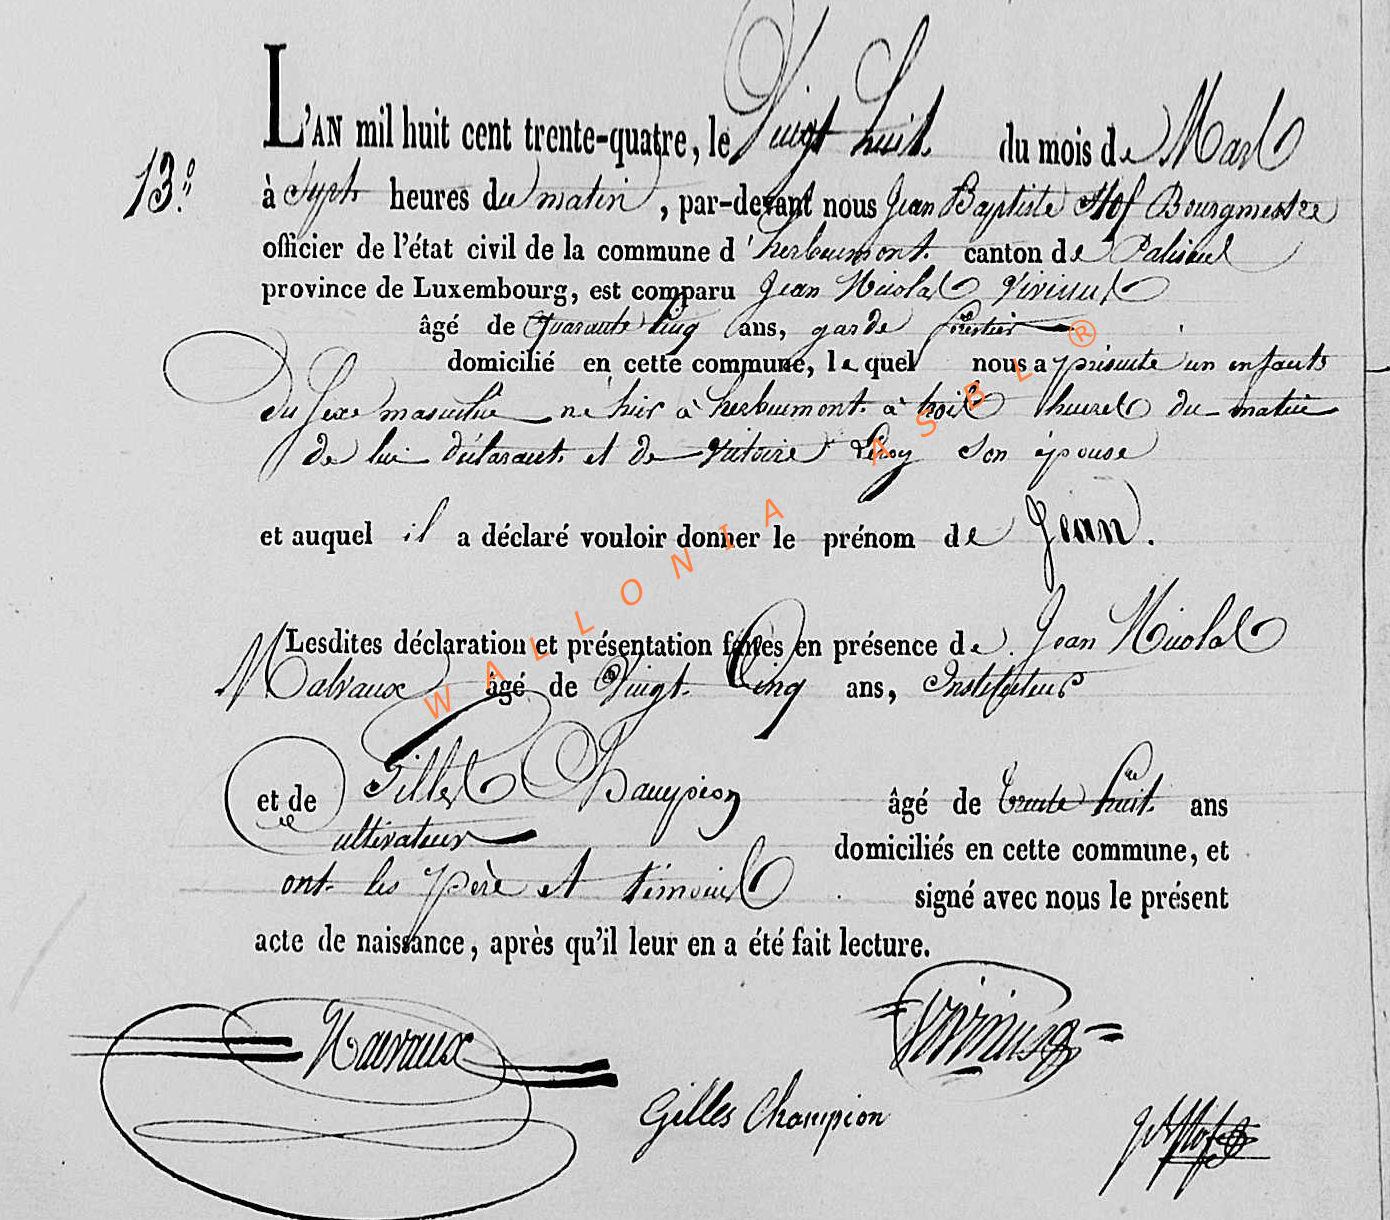 L'AN mil huit cent trente-quatre, le Vingt huit du mois de Mars
13.º à Sept heures du matin, par-devant nous Jean Baptiste Hof Bourgmestre
officier de l'état civil de la commune d'herbeumont canton de Paliseul
province de Luxembourg, est comparu Jean Nicolas
âgé de Quarante Cinq ans, garde forestier
domicilié en cette commune, lequel nous a présenté un enfants
du sexe masculin né hier à herbeumont à trois heures du matin
de lui déclarant et de Victoire Leroy son épouse
et auquel il a déclaré vouloir donner le prénom de Jean.
Lesdites déclaration et présentation faites en présence de Jean Nicolas
Malvaux âgé de Vingt Cinq ans, Instituteur
et de Gilles Champion âgé de trente huit ans
cultivateur domiciliés en cette commune, et
ont les père et témoins signé avec nous le présent
acte de naissance, après qu'il leur en a été fait lecture.
Malvaux
Gilles Champion
WALLONIA ASBL ®